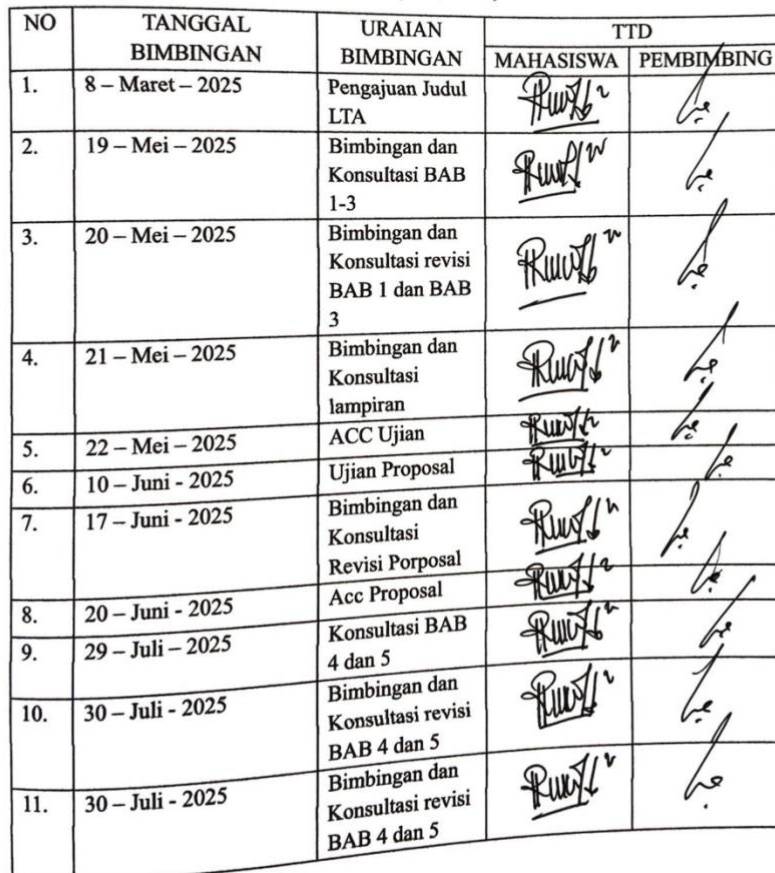 NO TANGGAL BIMBINGAN URAIAN BIMBINGAN TTD
MAHASISWA PEMBIMBING
1. 8 – Maret – 2025 Pengajuan Judul
LTA
2. 19 – Mei – 2025 Bimbingan dan
Konsultasi BAB
1-3
3. 20 – Mei – 2025 Bimbingan dan
Konsultasi revisi
BAB 1 dan BAB
3
4. 21 – Mei – 2025 Bimbingan dan
Konsultasi
lampiran
5. 22 – Mei – 2025 ACC Ujian
6. 10 – Juni - 2025 Ujian Proposal
7. 17 – Juni - 2025 Bimbingan dan
Konsultasi
Revisi Porposal
8. 20 – Juni - 2025 Acc Proposal
9. 29 – Juli – 2025 Konsultasi BAB
4 dan 5
10. 30 – Juli - 2025 Bimbingan dan
Konsultasi revisi
BAB 4 dan 5
11. 30 – Juli - 2025 Bimbingan dan
Konsultasi revisi
BAB 4 dan 5